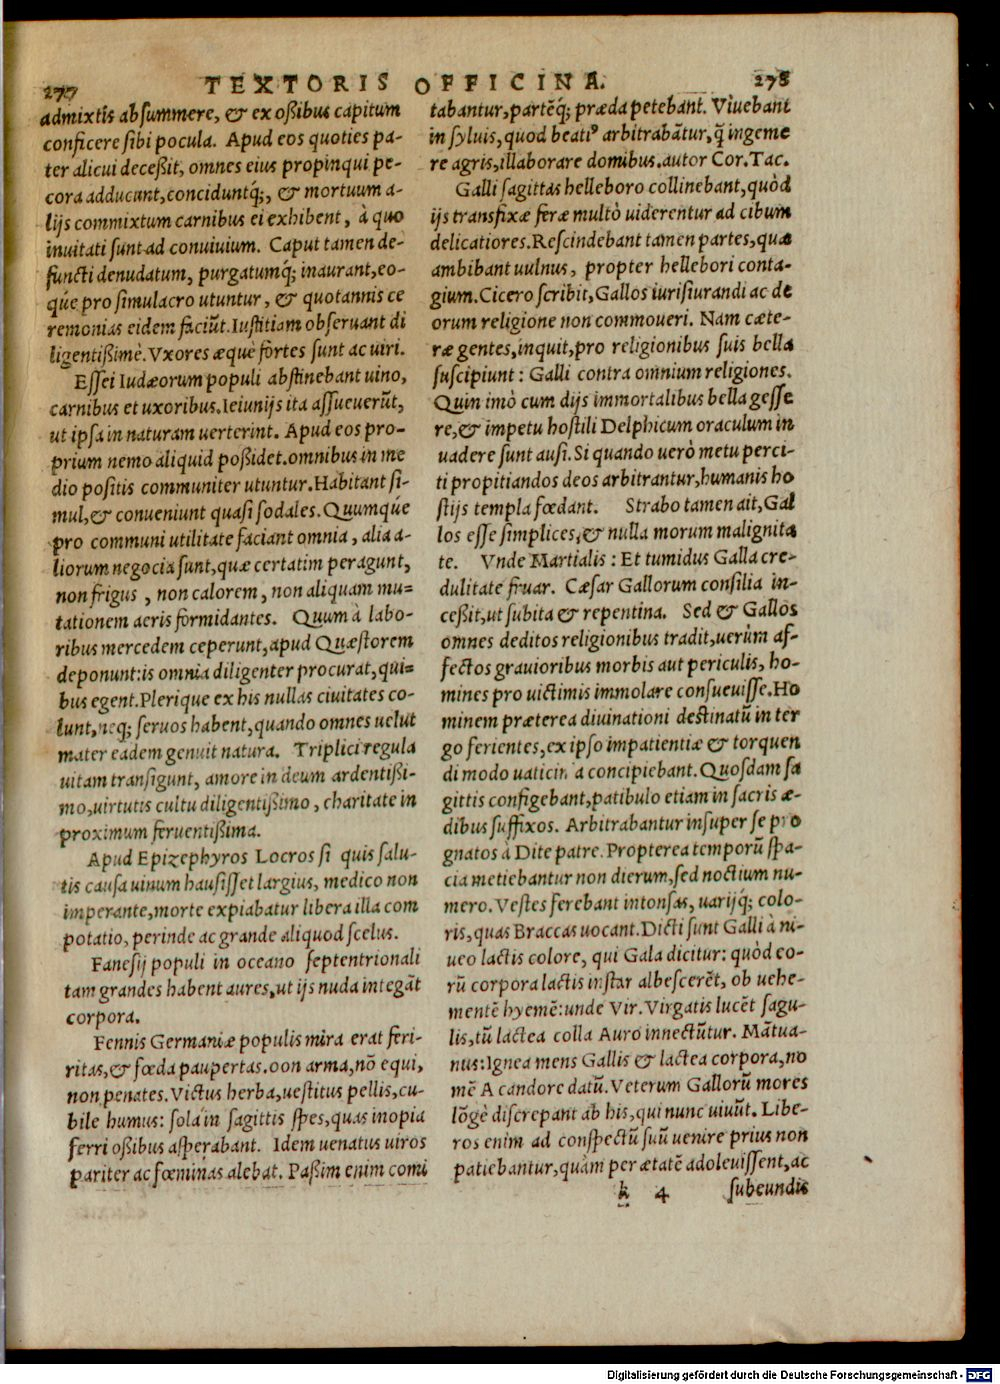 277 TEXTORIS OFFICINA. 278
admixtis absummere, & ex oßibus capitum
conficere sibi pocula. Apud eos quoties pa-
ter alicui deceßit, omnes eius propinqui pe-
cora adducunt, conciduntq́;, & mortuum a-
lijs commixtum carnibus ei exhibent, à quo
inuitati sunt ad conuiuium. Caput tamen de-
functi denudatum, purgatumq́; inaurant, eo-
qúe pro simulacro utuntur, & quotannis ce
remonias eidem faciūt. Iustitiam obseruant di
ligentißimè. Vxores æquè fortes sunt ac uiri.
Essei Iudæorum populi abstinebant uino,
carnibus et uxoribus. Ieiunijs ita assueuerūt,
ut ipsa in naturam uerterint. Apud eos pro-
prium nemo aliquid poßidet. omnibus in me
dio positis communiter utuntur. Habitant si-
mul, & conueniunt quasi sodales. Quumqúe
pro communi utilitate faciant omnia, alia a-
liorum negocia sunt, quæ certatim peragunt,
non frigus, non calorem, non aliquam mu=
tationem aeris formidantes. Quum à labo-
ribus mercedem ceperunt, apud Quæstorem
deponunt: is omnia diligenter procurat, qui=
bus egent. Plerique ex his nullas ciuitates co-
lunt, neq; seruos habent, quando omnes uelut
mater eadem genuit natura. Triplici regula
uitam transigunt, amore in deum ardentißi-
mo, uirtutis cultu diligentißimo, charitate in
proximum feruentißima.
Apud Epizephyros Locros si quis salu-
tis causa uinum hausisset largius, medico non
imperante, morte expiabatur libera illa com
potatio, perinde ac grande aliquod scelus.
Fanesij populi in oceano septentrionali
tam grandes habent aures, ut ijs nuda integāt
corpora.
Fennis Germaniæ populis mira erat feri-
ritas, & fœda paupertas. oon arma, nō equi,
non penates. Victus herba, uestitus pellis, cu-
bile humus: sola in sagittis spes, quas inopia
ferri oßibus asperabant. Idem uenatus uiros
pariter ac fœminas alebat. Paßim enim comi
tabantur, partēq́; præda petebant. Viuebant
in syluis, quod beatiꝰ arbitrabātur, q̄ ingeme
re agris, illaborare domibus. autor Cor. Tac.
Galli sagittas helleboro collinebant, quòd
ijs transfixæ feræ multò uiderentur ad cibum
delicatiores. Rescindebant tamen partes, quæ
ambibant uulnus, propter hellebori conta-
gium. Cicero scribit, Gallos iurisiurandi ac de
orum religione non commoueri. Nam cæte-
ræ gentes, inquit, pro religionibus suis bella
suscipiunt: Galli contra omnium religiones.
Quin imò cum dijs immortalibus bella gesse
re, & impetu hostili Delphicum oraculum in
uadere sunt ausi. Si quando uerò metu perci-
ti propitiandos deos arbitrantur, humanis ho
stijs templa fœdant. Strabo tamen ait, Gal
los esse simplices, & nulla morum malignita
te. Vnde Martialis: Et tumidus Galla cre-
dulitate fruar. Cæsar Gallorum consilia in-
ceßit, ut subita & repentina. Sed & Gallos
omnes deditos religionibus tradit, uerùm af-
fectos grauioribus morbis aut periculis, ho-
mines pro uictimis immolare consueuisse. Ho
minem præterea diuinationi destinatū in ter
go ferientes, ex ipso impatientiæ & torquen
di modo uaticinia concipiebant. Quosdam sa
gittis configebant, patibulo etiam in sacris æ-
dibus suffixos. Arbitrabantur insuper se pro
gnatos à Dite patre. Propterea temporū spa-
cia metiebantur non dierum, sed noctium nu-
mero. Vestes ferebant intonsas, uarijq́; colo-
ris, quas Braccas uocant. Dicti sunt Galli à ni-
ueo lactis colore, qui Gala dicitur: quòd eo-
rū corpora lactis instar albescerēt, ob uehe-
mentē hyemē: unde Vir. Virgatis lucēt sagu-
lis, tū lactea colla Auro innectūtur. Mātua-
nus: Ignea mens Gallis & lactea corpora, no
mē A candore datū. Veterum Gallorū mores
lōgè discrepant ab his, qui nunc uiuūt. Libe-
ros enim ad conspectū suū uenire prius non
patiebantur, quàm per ætatē adoleuissent, ac
k 4 subeundis
Digitalisierung gefördert durch die Deutsche Forschungsgemeinschaft - DFG